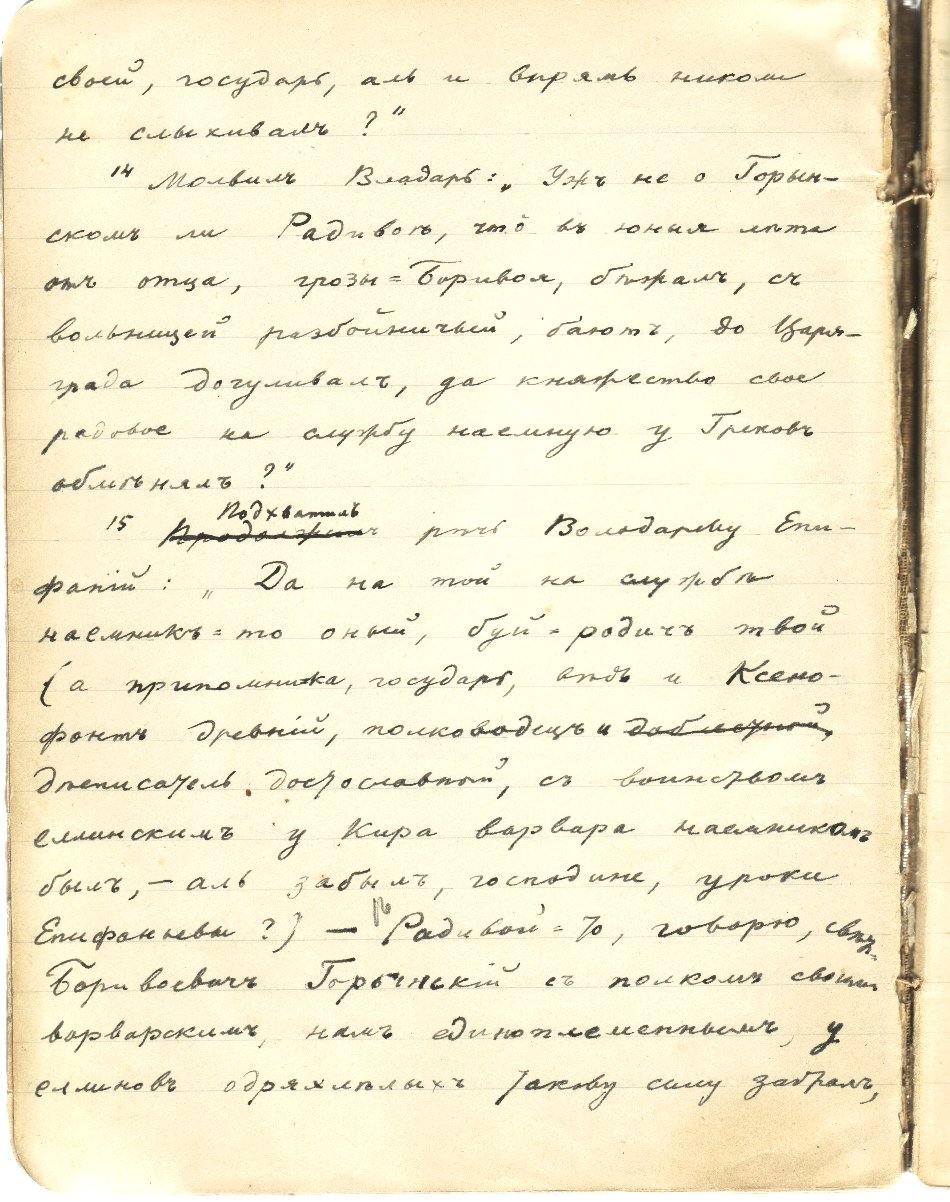 своей, государь, аль и впрямь николи
не слыхивалъ?"
14 Молвилъ Владарь: „Ужъ не о Горын-
скомъ ли Радивоѣ, что̀ въ юныя лѣта
отъ отца, грозы=Боривоя, бѣжалъ, съ
вольницей разбойничьей, бают̑ъ, до Царя-
града догуливалъ, да княжество свое
родовое на службу наемную у Грековъ
обмѣнялъ?"
Подхватилъ
15 Продолжилъ рѣчь Володареву Епи-
фаній: „Да на той на службѣ
наемникъ=то оный, буй=родичъ твой
(а припомни=ка, государь, вѣдь и Ксено-
фонтъ древній, полководецъ и доблестный,
дѣеписатель достославный, съ воинствомъ
еллинскимъ у Кира варвара наемникомъ
былъ, – аль забылъ, господине, уроки
Епифаньевы?) — 16 Радивой=то, говорю, свѣтъ-
Боривоевичъ Горынскій съ полкомъ своимъ
варварскимъ, намъ единоплеменнымъ, у
еллиновъ одряхлѣлыхъ такову силу забралъ,